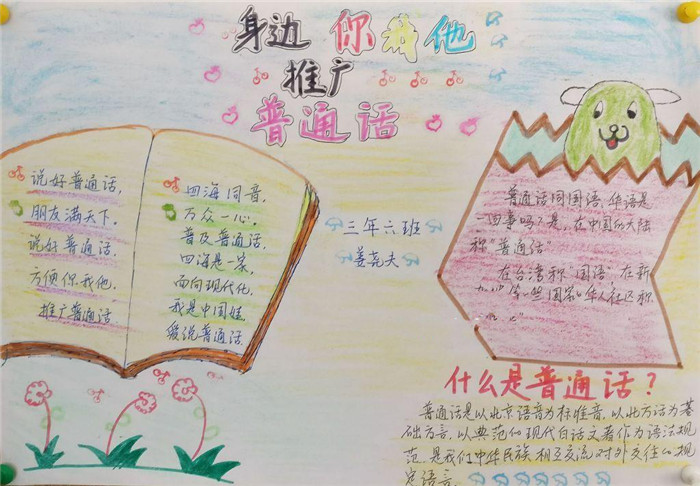 身边 你我他
推广
普通话
说好普通话，
朋友满天下。
说好普通话，
方便你我他，
推广普通话
四海同音，
万众一心。
普及普通话，
四海是一家，
面向现代化，
我是中国娃，
爱说普通话。
三年六班
姜尧夫
普通话同国语、华语是
一回事吗？是，在中国的大陆
称“普通话”
在台湾称“国语”在新
等一些国家的华人社区称
什么是普通话？
普通话是以北京语音为标准音，以北方话为基
础方言，以典范的现代白话文著作为语法规
范，是我们中华民族相互交流对外交往的规
定语言。